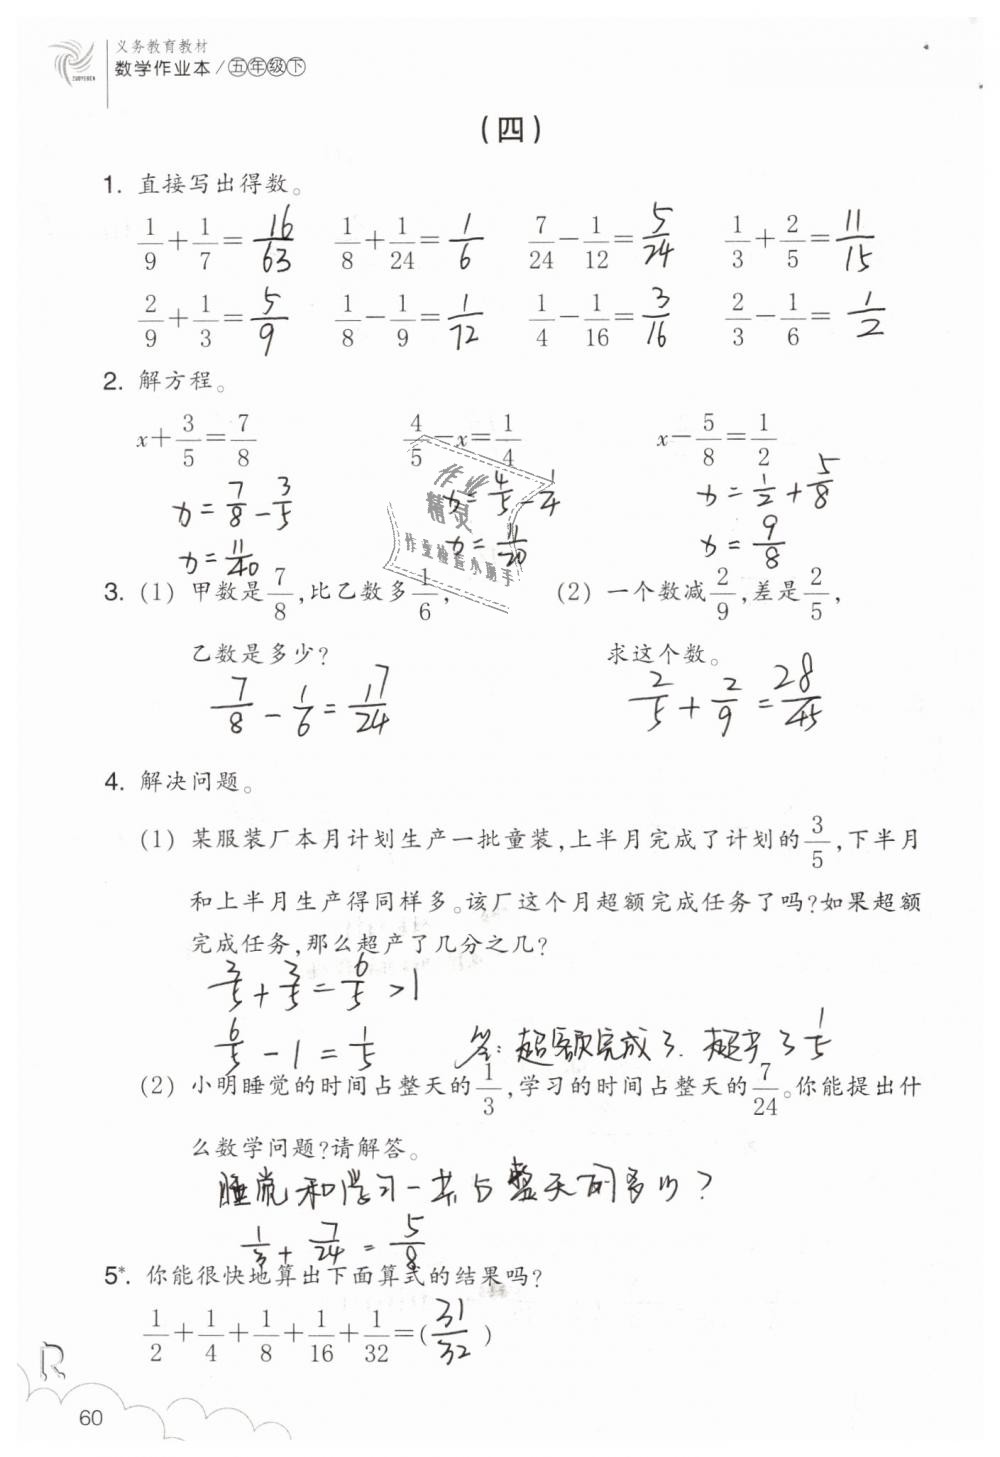 义务教育教材
数学作业本/五年级下
ZUOYEBEN
(四)
1. 直接写出得数。
1/9+1/7=16/63 1/8+1/24=1/6 7/24-1/12=5/24 1/3+2/5=11/15
2/9+1/3=5/9 1/8-1/9=1/72 1/4-1/16=3/16 2/3-1/6=1/2
2. 解方程。
x+3/5=7/8 4/5-x=1/4 x-5/8=1/2
x=7/8-3/5 x=4/5-1/4 x=1/2+5/8
x=11/40 x=11/20 x=9/8
作业
精灵
作业检查小助手
3. (1) 甲数是7/8,比乙数多1/6, (2) 一个数减2/9,差是2/5,
乙数是多少? 求这个数。
7/8-1/6=17/24 2/5+2/9=28/45
4. 解决问题。
(1) 某服装厂本月计划生产一批童装,上半月完成了计划的3/5,下半月
和上半月生产得同样多。该厂这个月超额完成任务了吗?如果超额
完成任务,那么超产了几分之几?
3/5+3/5=6/5>1
6/5-1=1/5 答:超额完成了.超产了1/5
(2) 小明睡觉的时间占整天的1/3,学习的时间占整天的7/24。你能提出什
么数学问题?请解答。
睡觉和学习一共占整天的多少?
1/3+7/24=5/8
5*. 你能很快地算出下面算式的结果吗?
1/2+1/4+1/8+1/16+1/32=(31/32)
R
60